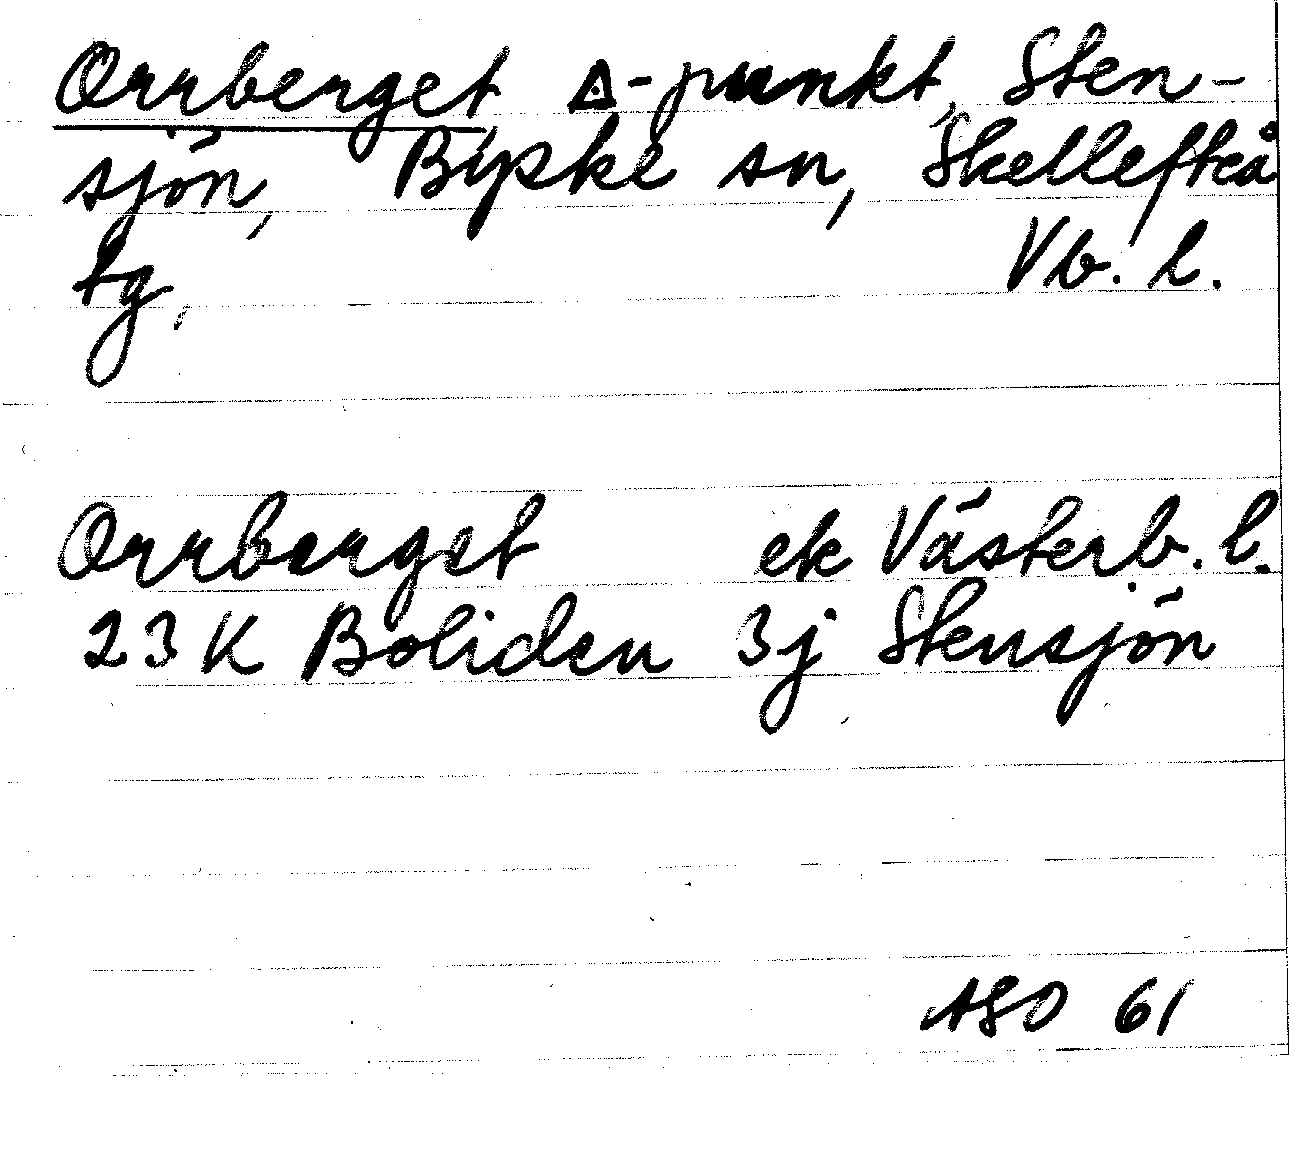 Orrberget, △-punkt, Sten-
sjön, Byske sn, Skellefteå
tg, Vb. l.
Orrberget ek Västerb. l.
23 K Boliden 3j Stensjön
ASO 61